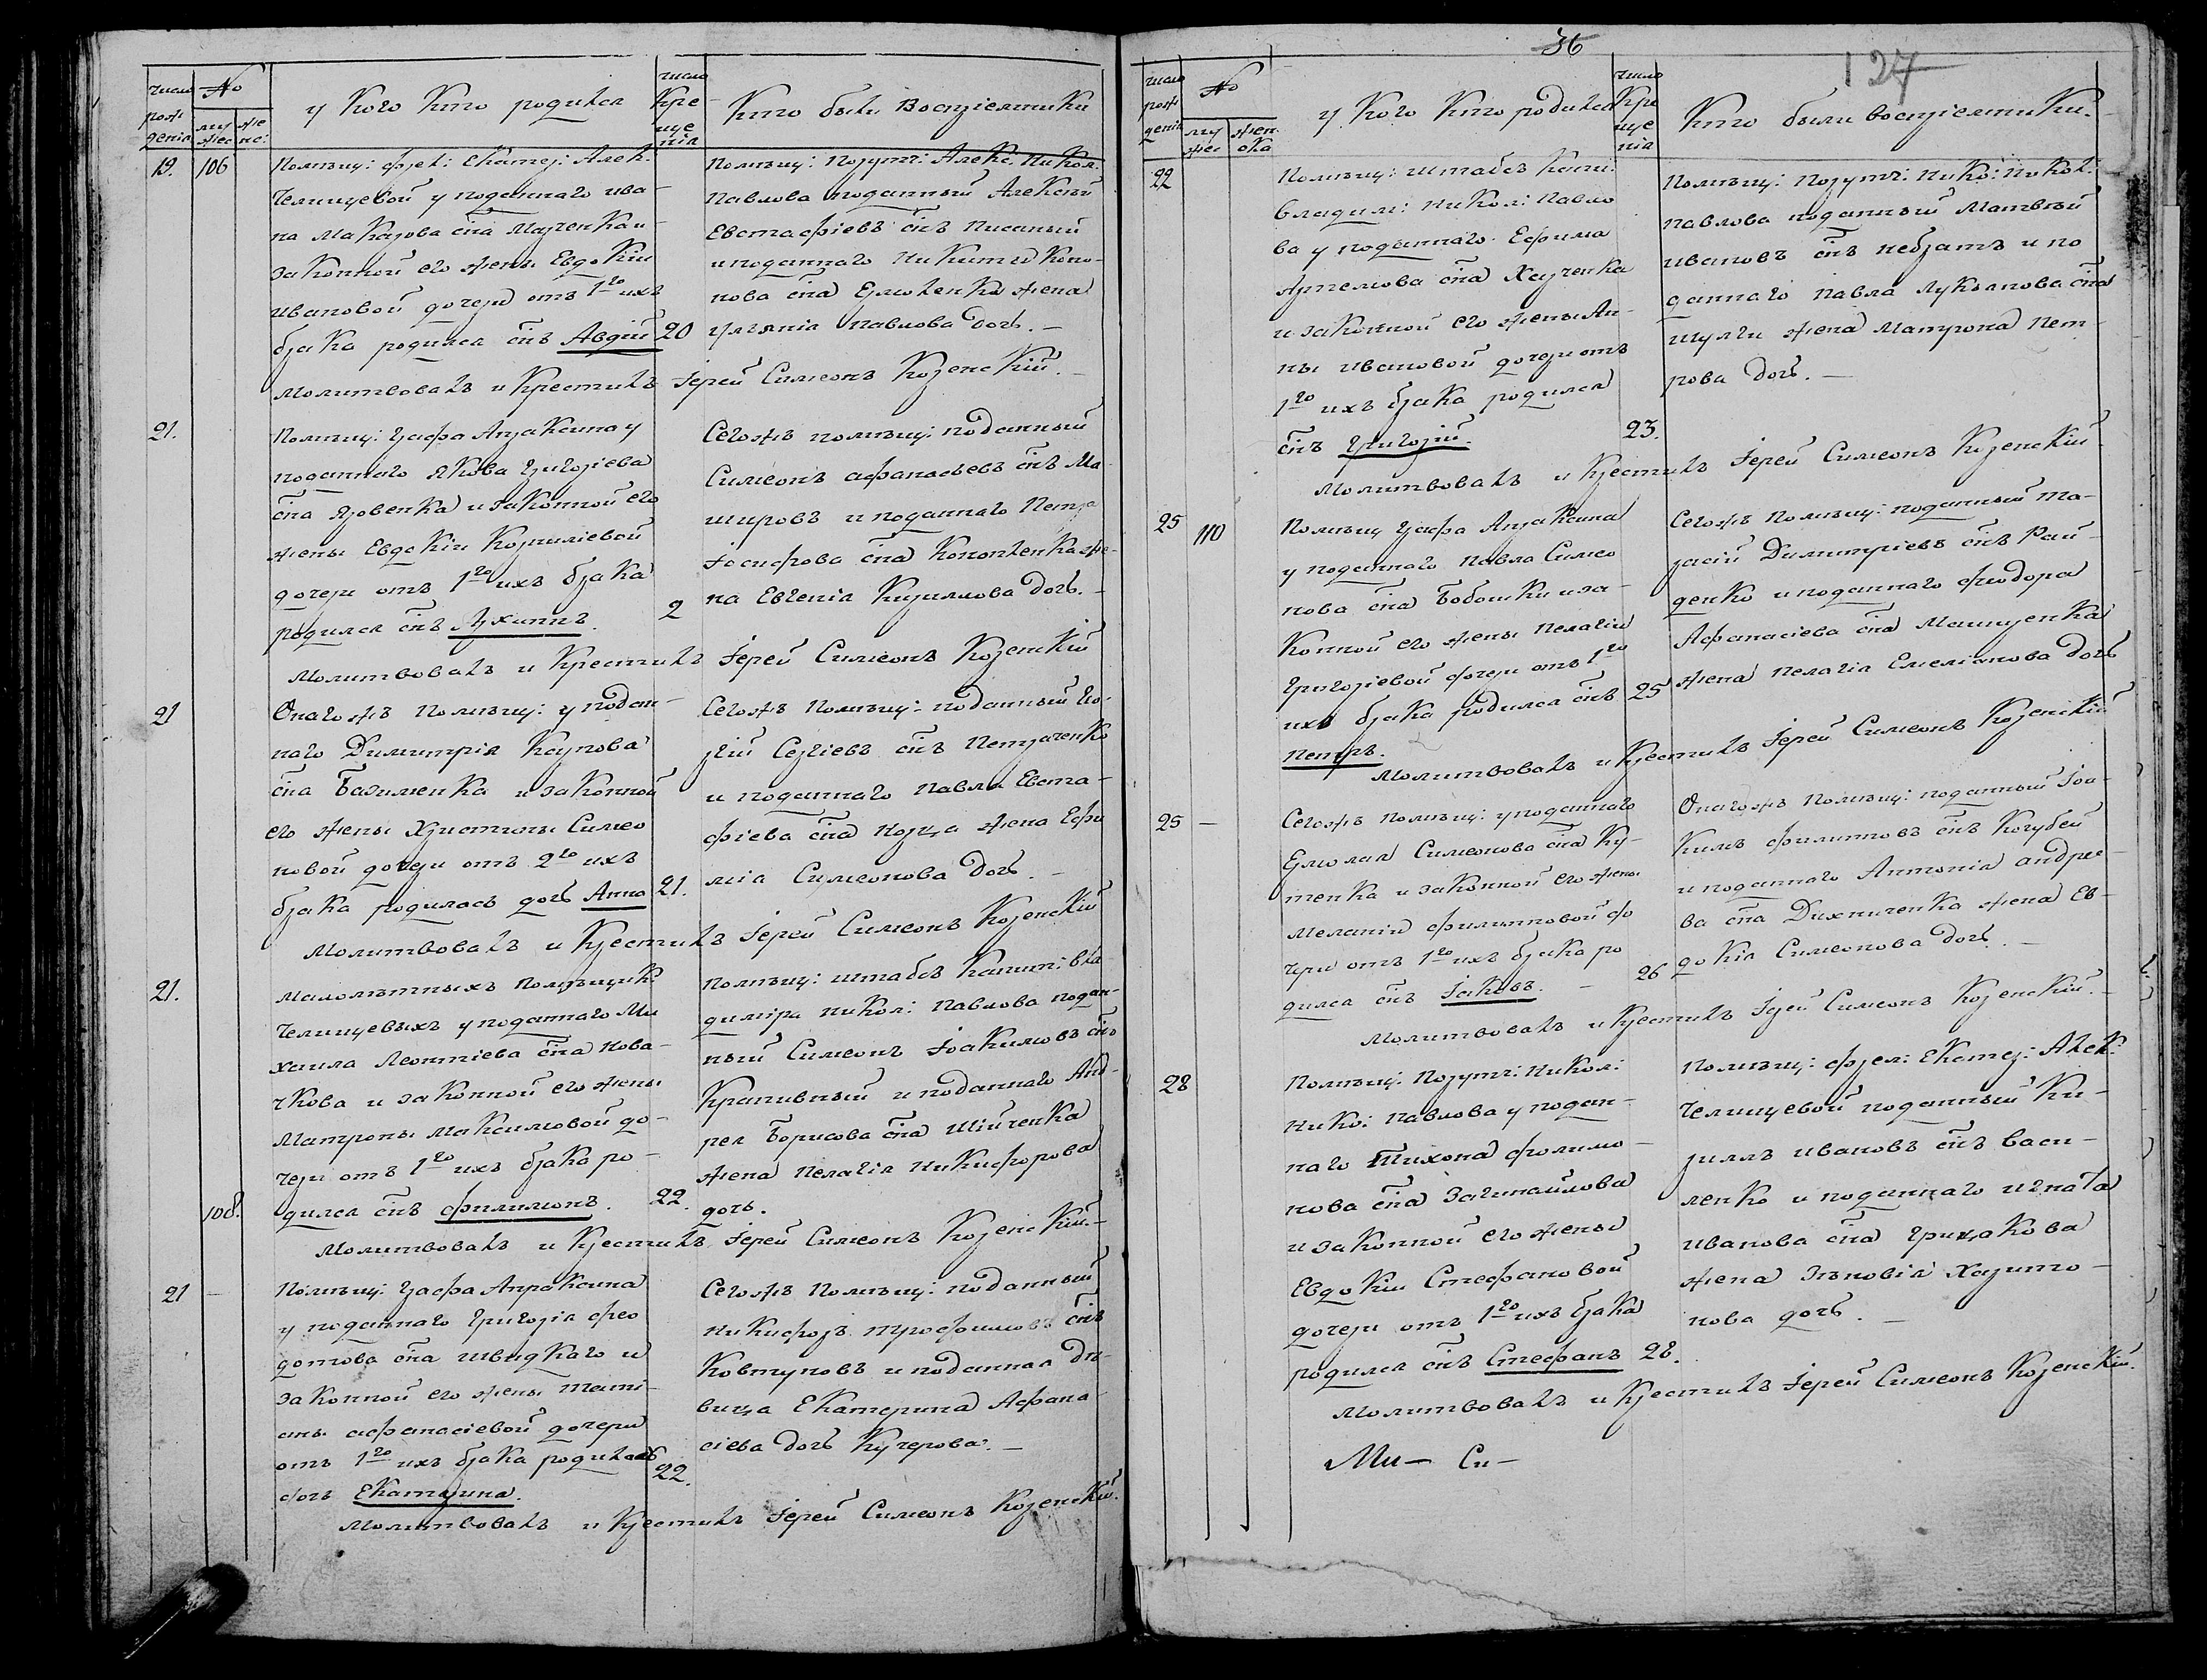 число рожденія
№
муже
женс:
у кого кто родился
число Крещенія
Кто были Воспріемники
19.
106
Помѣщ: фрел: Екатер: Алек:
Челищевой у подданнаго Ива-
на Макарова сна Марченка и
законной его жены Евдокіи
Ивановой дочери отъ 1го ихъ
брака родился снъ Авдій
20
Помѣщ: Поруч: Алекс: Никол:
Павлова подданный Алексѣй
Евстафіевъ снъ Писаный
и подданнаго Никиты Коно-
нова сна Ермоленка жена
Уліянія Павлова дочь. —
Молитвовалъ и Крестилъ Іерей Симеонъ Козенскій. —
21.
Помѣщ: Графа Апраксина у
подданнаго Якова Григоріева
сна Яковенка и законной его
жены Евдокіи Корниліевой
дочери отъ 1го ихъ брака
родился снъ Архипъ.
2
Сегожъ помѣщ: подданный
Симеонъ Афанасьевъ снъ Ма-
шировъ и подданнаго Петра
Іосифова сна Кононенка же-
на Евгенія Кирилова дочь. —
Молитвовалъ и Крестилъ Іерей Симеонъ Козенскій
21
Онагожъ Помѣщ: у поддан-
наго Димитрія Карпова
сна Базименка и законной
его жены Христины Симео
новой дочери отъ 2го ихъ
брака родилась дочь Анна
21.
Сегожъ Помѣщ: подданный Ге-
ргій Сергіевъ снъ Петраченко
и подданнаго Павла Евста-
фіева сна Порца жена Ефи
мія Симеонова Дочь. —
Молитвовалъ и Крестилъ Іерей Симеонъ Козенскій
21.
108.
Малолѣтныхъ Помѣщик:
Челищевыхъ у подданнаго Ми
хаила Леонтіева сна Нова-
чкова и законной его жены
Матроны Максимовой до-
чери отъ 1го ихъ брака ро-
дился снъ Филимонъ.
22.
Помѣщ: штабсъ Капит: Вла-
диміра Никол: Павлова поддан-
ный Симеонъ Іоакимовъ снъ
Крапивный и подданнаго Анд-
рея Борисова сна Шійченка
жена Пелагія Никифорова
дочь.
Молитвовалъ и Крестилъ Іерей Симеонъ Козенскій. —
21 —
Помѣщ: Графа Апраксина
у подданнаго Григорія Фео
дотова сна Швидкаго и
законной его жены Таті-
аны Афанасіевой дочери
отъ 1го ихъ брака родилась
дочь Екатерина.
22.
Сегожъ Помѣщ: подданный
Никифоръ Трофимовъ снъ
Ковтуновъ и подданная Дѣ-
вица Екатерина Афана
сіева дочь Кучерова. —
Молитвовалъ и Крестилъ Іерей Симеонъ Козенскій.
36
127
число рожденія
№
муже
женска
у кого кто родился
число Крещенія
Кто были воспріемники.
22
Помѣщ: штабсъ Капи:
Владим: Никол: Павло
ва у подданнаго Ефима
Артемова сна Харченка
и законной его жены Ан-
ны Ивановой дочери отъ
1го ихъ брака родился
снъ Григорій.
23.
Помѣщ: Поруч: Нико: Никол:
Павлова подданный Матвѣй
Ивановъ снъ Небратъ и по
даннаго Павла Лукьянова сна
Шулги жена Матрона Пет-
рова Дочь. —
Молитвовалъ и Крестилъ Іерей Симеонъ Козенскій
25
110
Помѣщ Графа Апраксина
у подданнаго Павла Симео
нова сна Бобошки и за-
конной его жены Пелагіи
Григоріевой дочери отъ 1го
ихъ брака родился снъ
Петръ.
25
Сегожъ Помѣщ: подданный Та-
расій Димитріевъ снъ Рай-
денко и подданнаго Феодора
Афанасіева сна Мащенка
жена Пелагія Емеліанова Дочь
Молитвовалъ и Крестилъ Іерей Симеонъ Козенскій
25 —
Сегожъ Помѣщ: у подданнаго
Ермолая Симеонова сна Ку-
тенка и законной его жены
Меланіи Филиповой до
чери отъ 1го ихъ брака ро
дился снъ Іаковъ. —
26
Онагожъ Помѣщ: подданный Іоа-
кимъ Филиповъ снъ Кочубей
и подданнаго Антонія Андрее-
ва сна Дихниченка жена Ев-
докія Симеонова Дочь. —
Молитвовалъ и Крестилъ Іерей Симеонъ Козенскій. —
28
Помѣщ: Поруч: Никол:
Нико: Павлова у поддан-
наго Тихона Филимо-
нова сна Загинайлова
и законной его жены
Евдокіи Стефановой
дочери отъ 1го ихъ брака
родился снъ Стефанъ
28.
Помѣщ: Фрел: Екатер: Алек:
Челищевой подданный Ки-
риллъ Ивановъ снъ Васи-
ленко и подданнаго Игната
Иванова сна Грицакова
жена Зѣновія Харито-
нова дочь. —
Молитвовалъ и Крестилъ Іерей Симеонъ Козенскій.
Ми — Си —